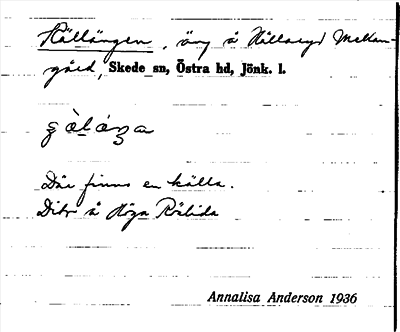 Källängen, äng å Hällaryd Mellan-
gård, Skede sn, Östra hd, Jönk. l.
Där finns en källa.
Ditv å Höga Rölida
Annalisa Anderson 1936